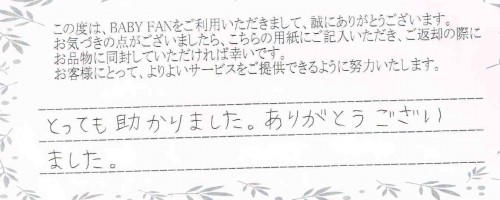 この度は、BABY FANをご利用いただきまして、誠にありがとうございます。
お気づきの点がございましたら、こちらの用紙にご記入いただき、ご返却の際に
お品物に同封していただければ幸いです。
お客様にとって、よりよいサービスをご提供できるように努力いたします。
とっても助かりました。ありがとうござい
ました。